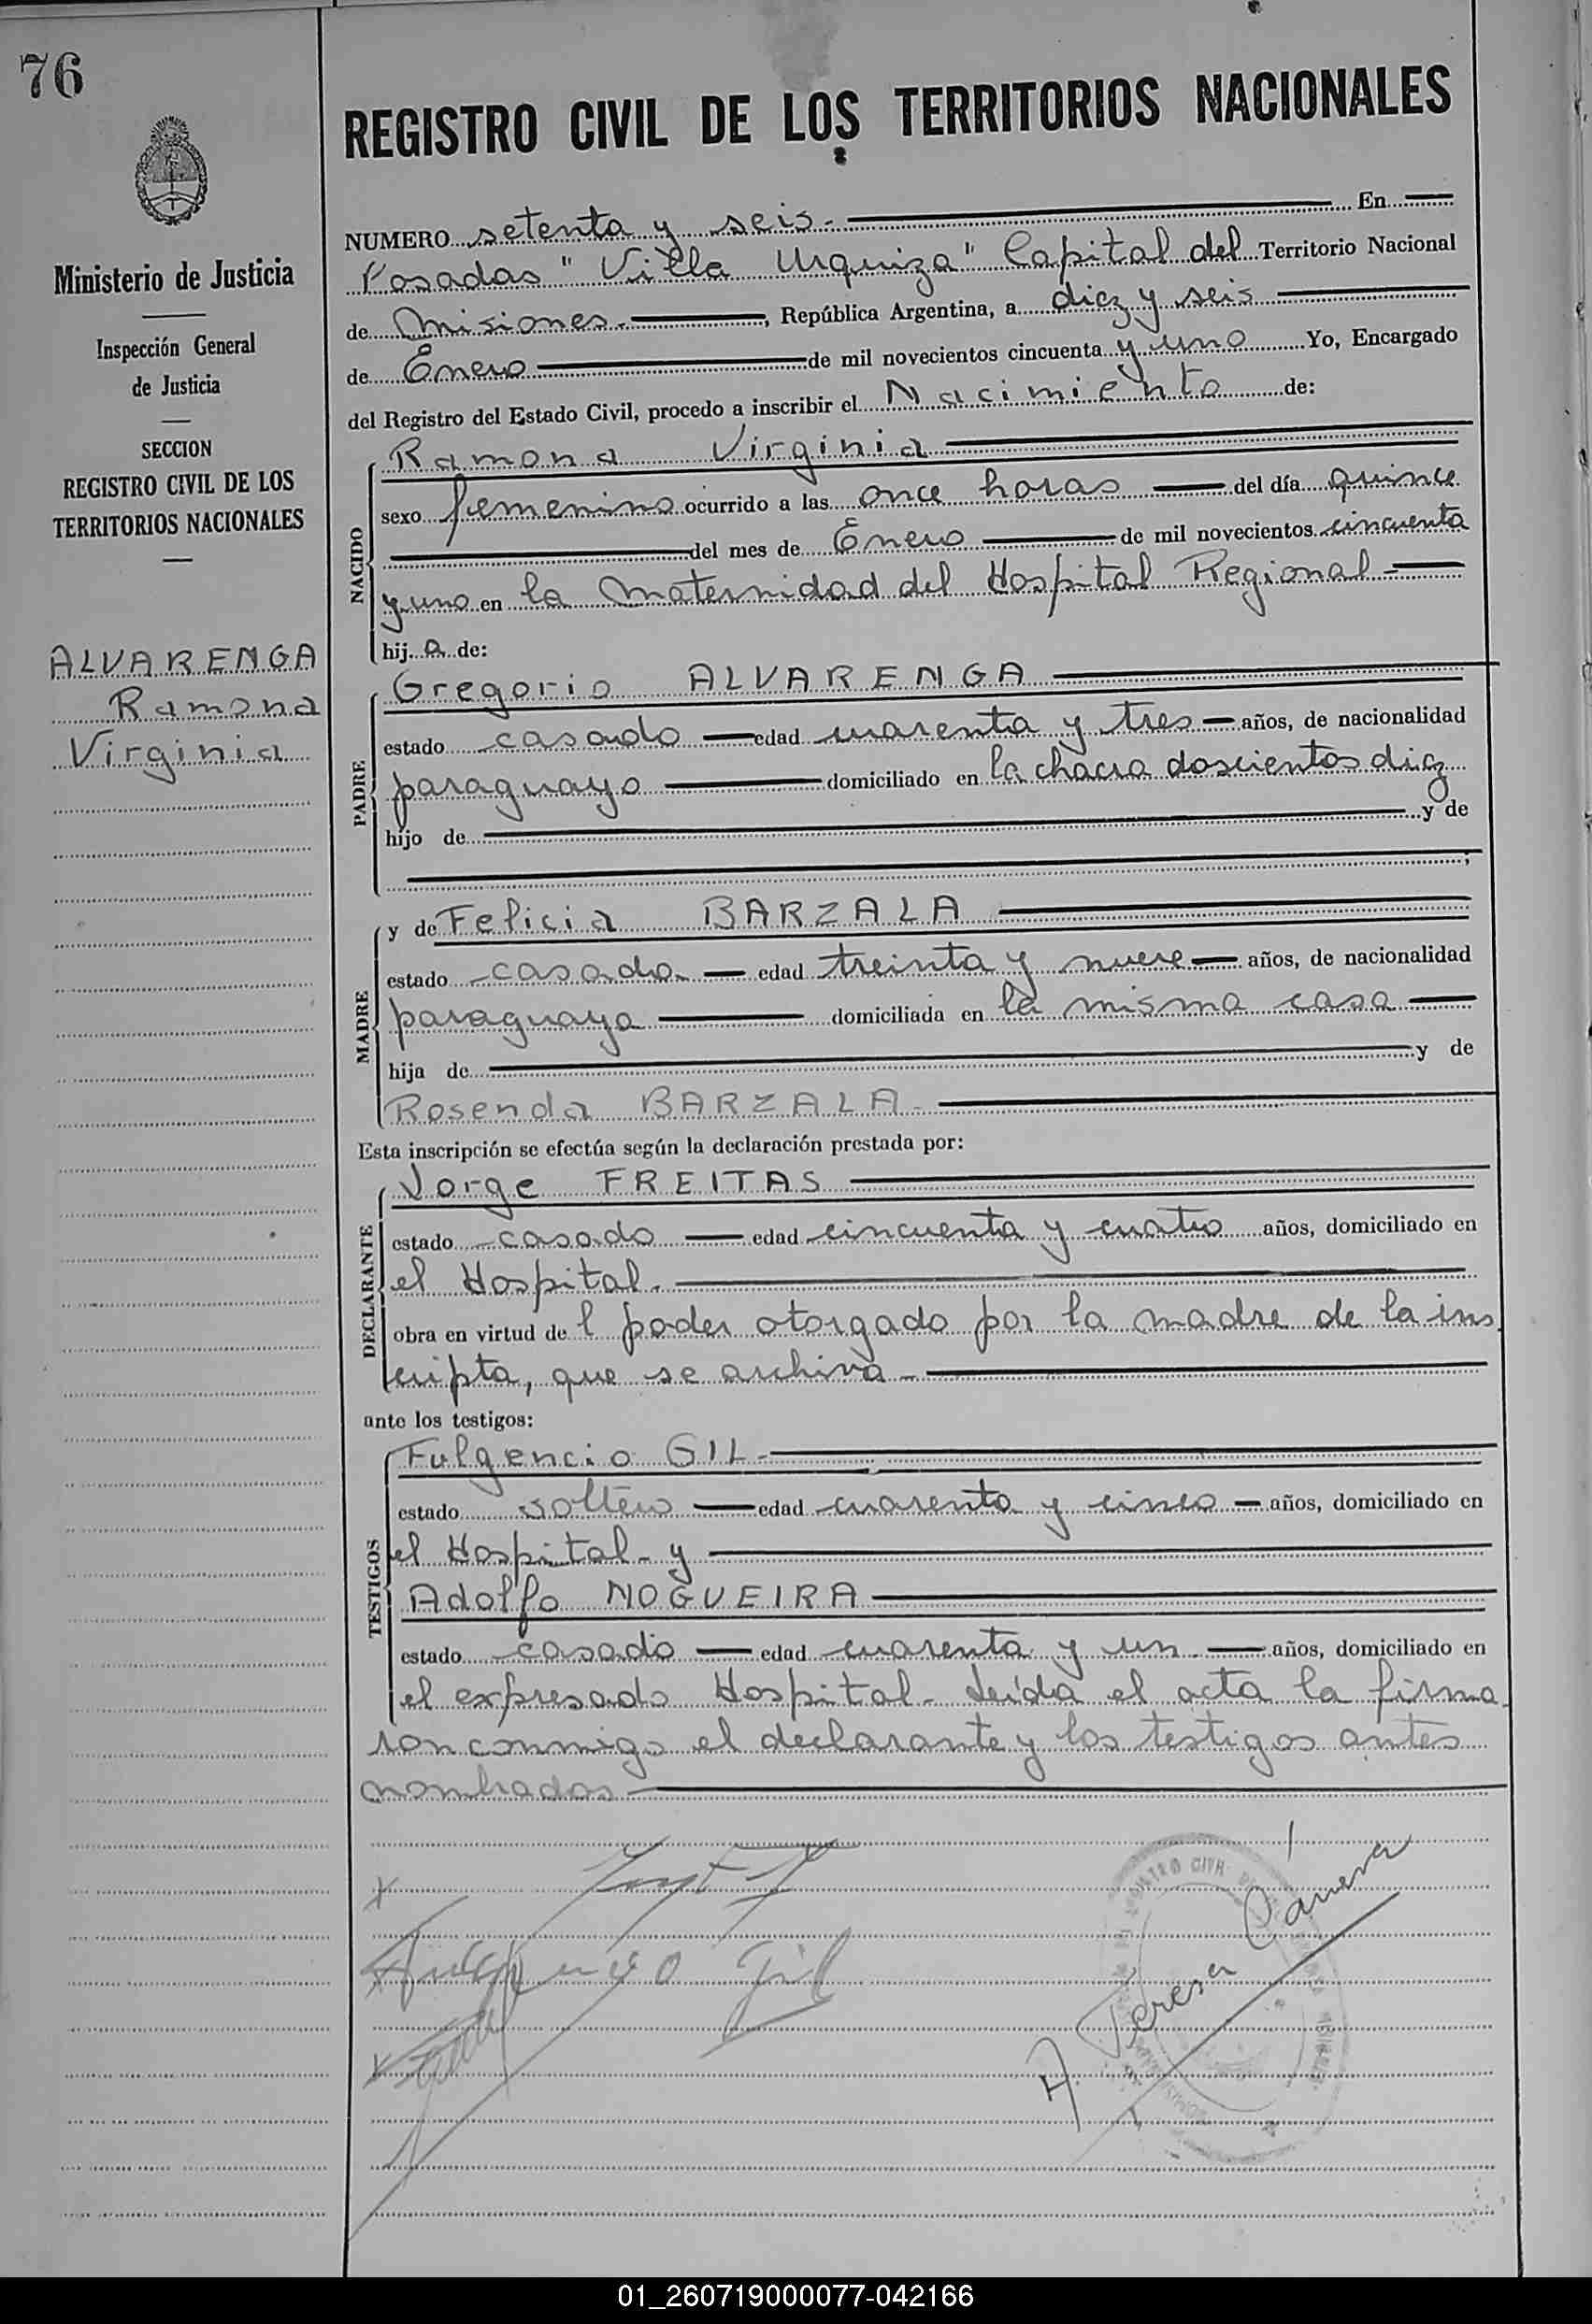 76
Ministerio de Justicia
Inspección General
de Justicia
SECCION
REGISTRO CIVIL DE LOS
TERRITORIOS NACIONALES
ALVARENGA
Ramona
Virginia
REGISTRO CIVIL DE LOS TERRITORIOS NACIONALES
NUMERO setenta y seis. En
Posadas "Villa Urquiza" Capital del Territorio Nacional
de Misiones., República Argentina, a diez y seis
de Enero de mil novecientos cincuenta y uno Yo, Encargado
del Registro del Estado Civil, procedo a inscribir el Nacimiento de:
NACIDO
Ramona Virginia
sexo femenino ocurrido a las once horas del día quince
del mes de Enero de mil novecientos cincuenta
y uno en la Maternidad del Hospital Regional
hij a de:
PADRE
Gregorio ALVARENGA
estado casado edad cuarenta y tres años, de nacionalidad
paraguayo domiciliado en la chacra doscientos diez
hijo de y de
;
MADRE
y de Felicia BARZALA
estado casada edad treinta y nueve años, de nacionalidad
paraguaya domiciliada en la misma casa
hija de y de
Rosenda BARZALA.
Esta inscripción se efectúa según la declaración prestada por:
DECLARANTE
Jorge FREITAS
estado casado edad cincuenta y cuatro años, domiciliado en
el Hospital.
obra en virtud de l poder otorgado por la madre de la ins
cripta, que se archiva
ante los testigos:
TESTIGOS
Fulgencio GIL
estado soltero edad cuarenta y cinco años, domiciliado en
el Hospital y
Adolfo NOGUEIRA
estado casado edad cuarenta y un años, domiciliado en
el expresado Hospital. Leída el acta la firma
ron conmigo el declarante y los testigos antes
nombrados
x
Fulgencio Gil
x
A. Teresa
01_260719000077-042166